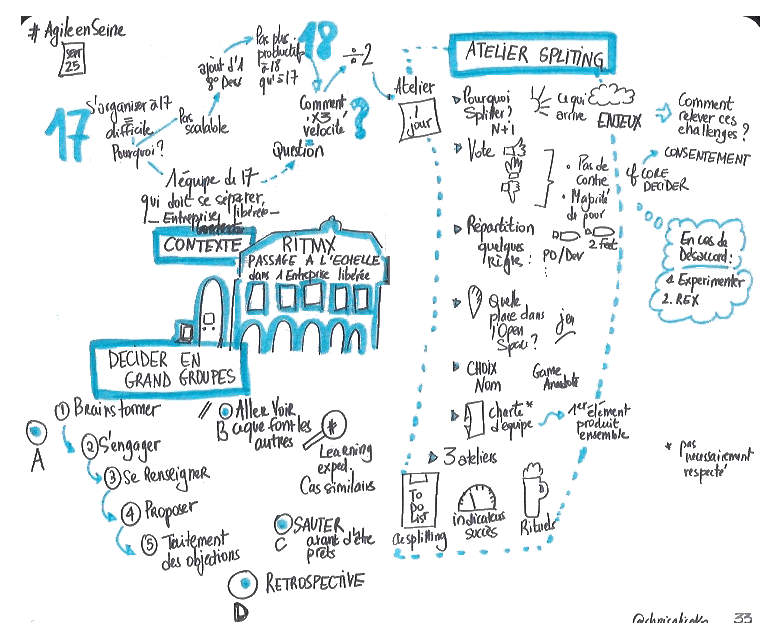 # AgileenSeine
25
17
S'organiser à 17
difficile.
Pourquoi?
Pas
scalable
ajout d'1
8° Dev
Pas plus
productif
à 18
qu'à 17
18
÷2
Comment
x3
vélocité
?
Question
1 équipe de 17
qui doit se séparer
Entreprise libérée
CONTEXTE
RITMX
PASSAGE A L'ECHELLE
dans 1 Entreprise libérée
DECIDER EN
GRAND GROUPES
A
① Brainstormer
② S'engager
③ Se Renseigner
④ Proposer
⑤ Traitement
des objections
//
B
Aller Voir
ce que font les
autres
*
Learning
exped.
Cas similaires
C
SAUTER
avant d'être
prêts
D
RETROSPECTIVE
Atelier
1
jour
ATELIER SPLITING
Pourquoi
Splitter?
N+1
ce qui
arrive
ENJEUX
Comment
relever ces
challenges?
Vote
• Pas de
contre
• Majorité
de pour
CONSENTEMENT
CORE
DECIDER
En cas de
Désaccord:
1. Experimenter
2. REX
Répartition
quelques
Règles:
PO/Dev
2 Feat
Quelle
place dans
l'Open
Space?
jeu
CHOIX
Nom
Game
Charte*
d'équipe
1er élément
produit
ensemble
* pas
nécessairement
respecté
3 ateliers
TO
DO
LIST
de splitting
indicateurs
succès
Rituels
33